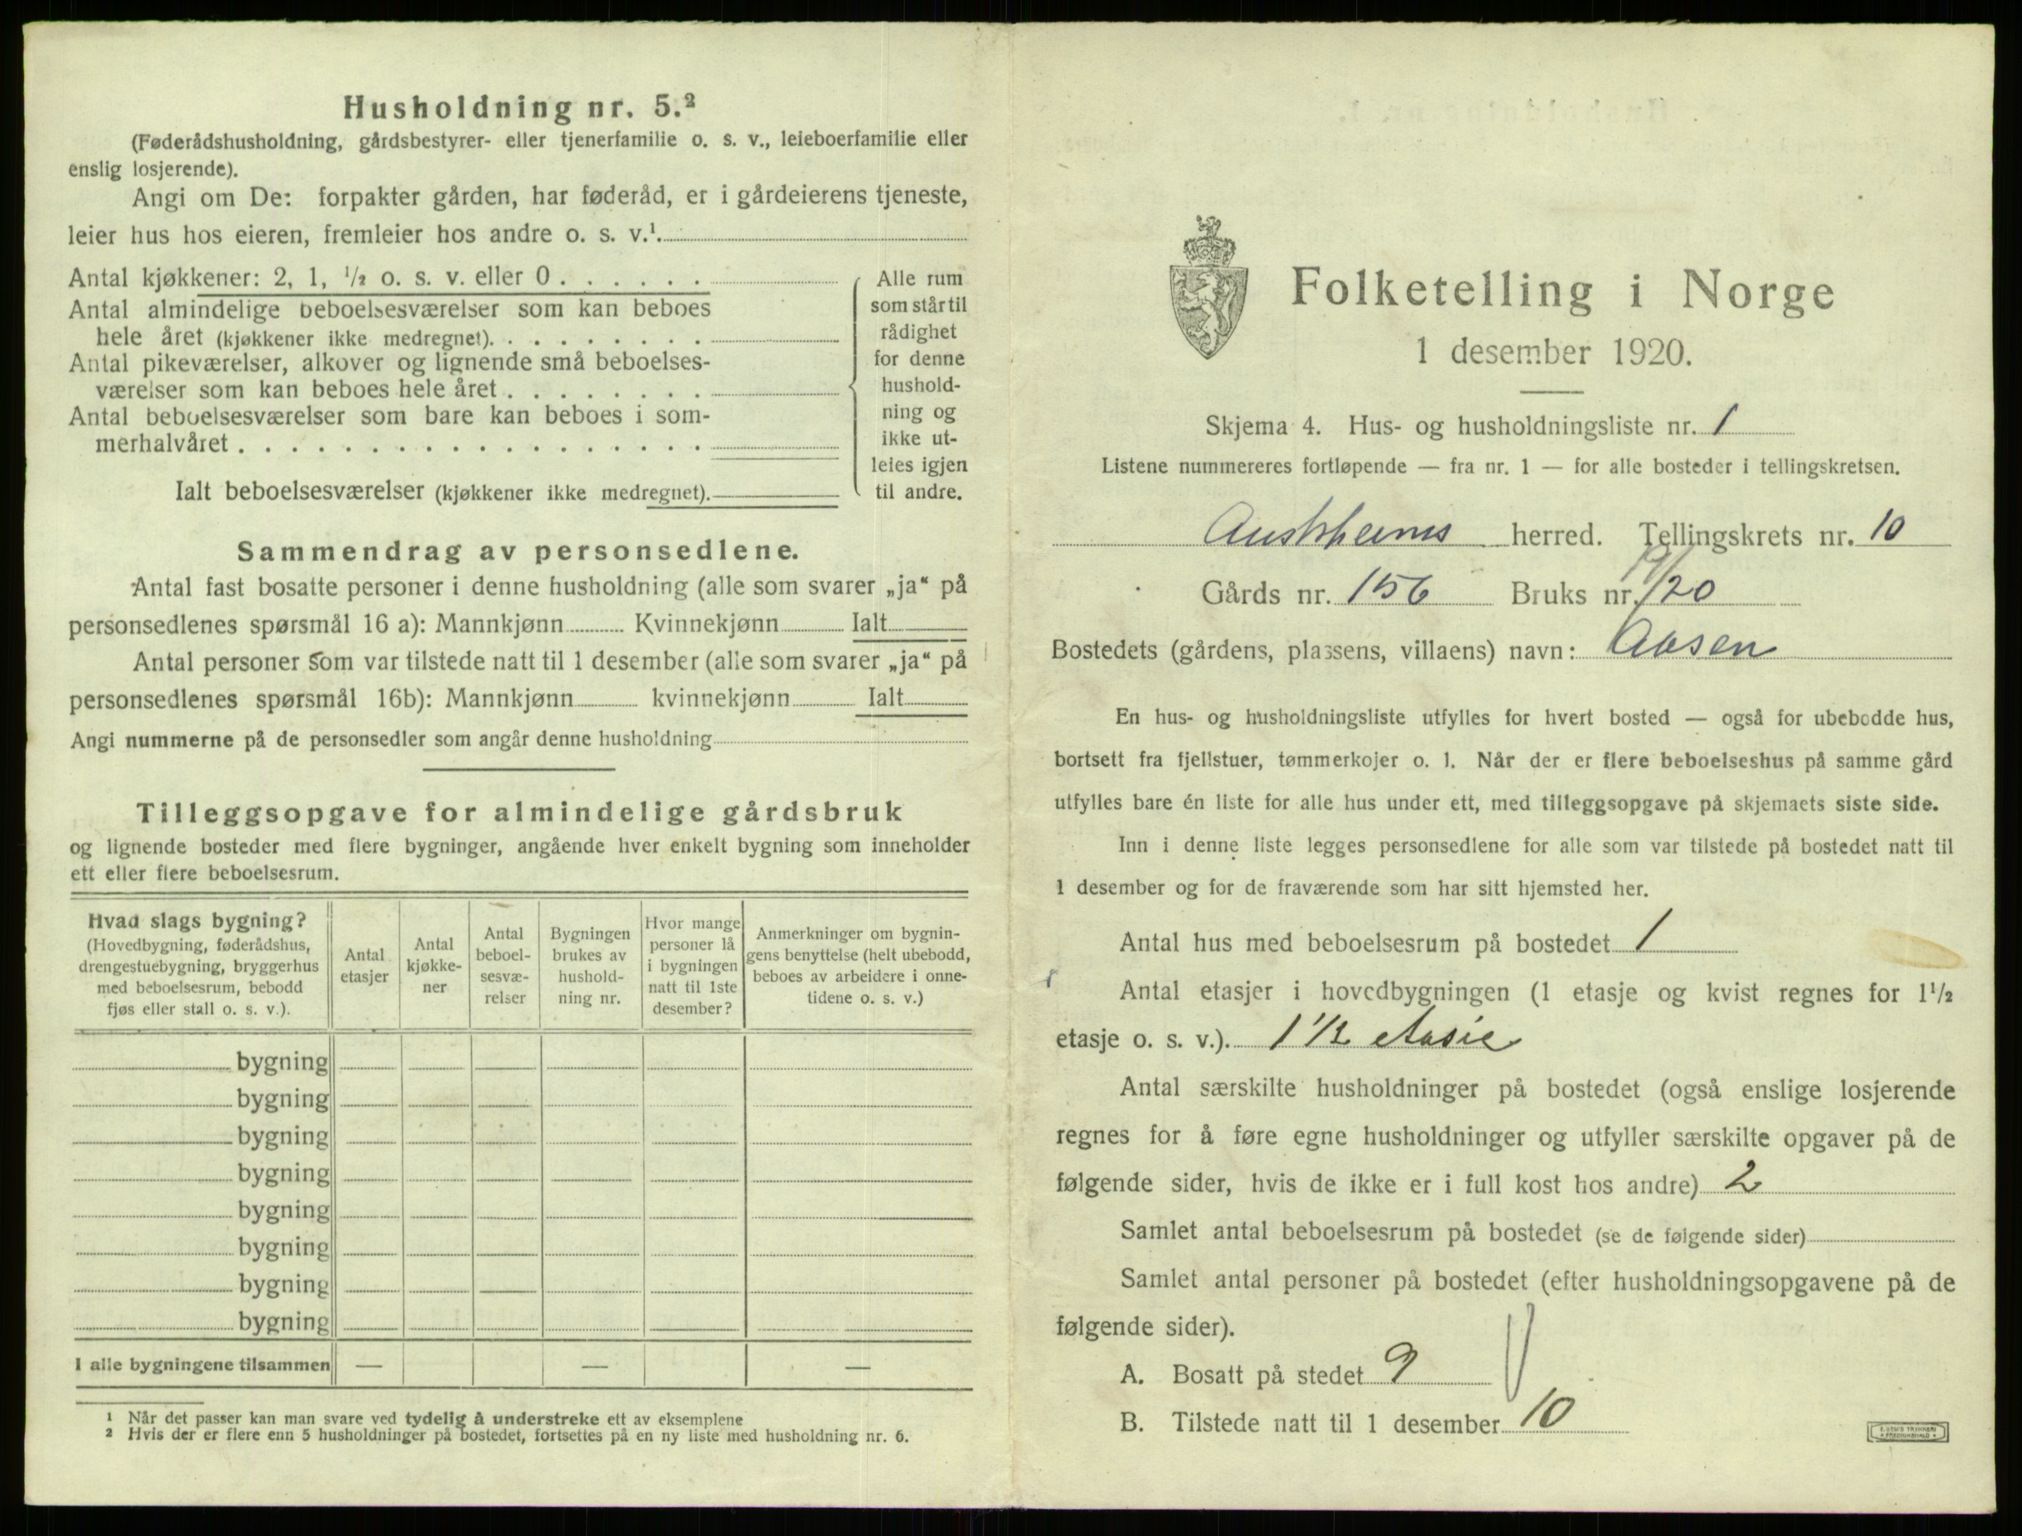 Husholdning nr. 5.²
(Føderådshusholdning, gårdsbestyrer- eller tjenerfamilie o. s. v., leieboerfamilie eller
enslig losjerende).
Angi om De: forpakter gården, har føderåd, er i gårdeierens tjeneste,
leier hus hos eieren, fremleier hos andre o. s. v.¹.
Antal kjøkkener: 2, 1, ½ o. s. v. eller 0 . . . . . .
Antal almindelige beboelsesværelser som kan beboes
hele året (kjøkkener ikke medregnet). . . . . . . . .
Antal pikeværelser, alkover og lignende små beboelses-
værelser som kan beboes hele året . . . . . . . .
Antal beboelsesværelser som bare kan beboes i som-
merhalvåret . . . . . . . . . . . . . . . . . .
Ialt beboelsesværelser (kjøkkener ikke medregnet).
Alle rum
som står til
rådighet
for denne
hushold-
ning og
ikke ut-
leies igjen
til andre.
Sammendrag av personsedlene.
Antal fast bosatte personer i denne husholdning (alle som svarer „ja“ på
personsedlenes spørsmål 16 a): Mannkjønn Kvinnekjønn Ialt
Antal personer som var tilstede natt til 1 desember (alle som svarer „ja“ på
personsedlenes spørsmål 16b): Mannkjønn kvinnekjønn Ialt
Angi nummerne på de personsedler som angår denne husholdning
Tilleggsopgave for almindelige gårdsbruk
og lignende bosteder med flere bygninger, angående hver enkelt bygning som inneholder
ett eller flere beboelsesrum.
Hvad slags bygning?
(Hovedbygning, føderådshus,
drengestuebygning, bryggerhus
med beboelsesrum, bebodd
fjøs eller stall o. s. v.).
Antal
etasjer
Antal
kjøkke-
ner
Antal
beboel-
sesvæ-
relser
Bygningen
brukes av
hushold-
ning nr.
Hvor mange
personer lå
i bygningen
natt til 1ste
desember?
Anmerkninger om bygnin-
gens benyttelse (helt ubebodd,
beboes av arbeidere i onne-
tidene o. s. v.)
bygning
bygning
bygning
bygning
bygning
bygning
bygning
bygning
I alle bygningene tilsammen — — —
¹ Når det passer kan man svare ved tydelig å understreke ett av eksemplene
² Hvis der er flere enn 5 husholdninger på bostedet, fortsettes på en ny liste med husholdning nr. 6.
Folketelling i Norge
1 desember 1920.
Skjema 4. Hus- og husholdningsliste nr. 1
Listene nummereres fortløpende — fra nr. 1 — for alle bosteder i tellingskretsen.
Austrheims herred. Tellingskrets nr. 10
Gårds nr. 156 Bruks nr. 19/20
Bostedets (gårdens, plassens, villaens) navn: Aasen
En hus- og husholdningsliste utfylles for hvert bosted — også for ubebodde hus,
bortsett fra fjellstuer, tømmerkojer o. l. Når der er flere beboelseshus på samme gård
utfylles bare én liste for alle hus under ett, med tilleggsopgave på skjemaets siste side.
Inn i denne liste legges personsedlene for alle som var tilstede på bostedet natt til
1 desember og for de fraværende som har sitt hjemsted her.
Antal hus med beboelsesrum på bostedet 1
Antal etasjer i hovedbygningen (1 etasje og kvist regnes for 1½
etasje o. s. v.). 1 1/2 etasie
Antal særskilte husholdninger på bostedet (også enslige losjerende
regnes for å føre egne husholdninger og utfyller særskilte opgaver på de
følgende sider, hvis de ikke er i full kost hos andre) 2
Samlet antal beboelsesrum på bostedet (se de følgende sider)
Samlet antal personer på bostedet (efter husholdningsopgavene på de
følgende sider).
A. Bosatt på stedet 9
B. Tilstede natt til 1 desember 10